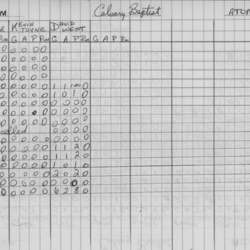 M Calvary Baptist ATOM
R KEVIN DAVID
TOYNE WEST
Ro G A P Ro G A P Ro G A P Ro
0 0 0 0 0
0 0 0 0 0
0 0 0 0 0
0 0 0 0 0 1 1 1 0 0
0 0 0 0 0 1 0 1 0
0 0 0 0 0 0 0 0 0
0 0 0 0 0 0 0 0 0
0 0 0 0 0 0 0 0 0
0 0 0 0
0 0 0 0 0 1 1 2 0
0 0 0 0 0 1 1 2 0
0 0 0 0 0 1 0 1 0
0 0 0 0 0 2 0 2 0
0 0 0 0 0 0 0 0 0
0 0 0 0 0 6 2 8 0